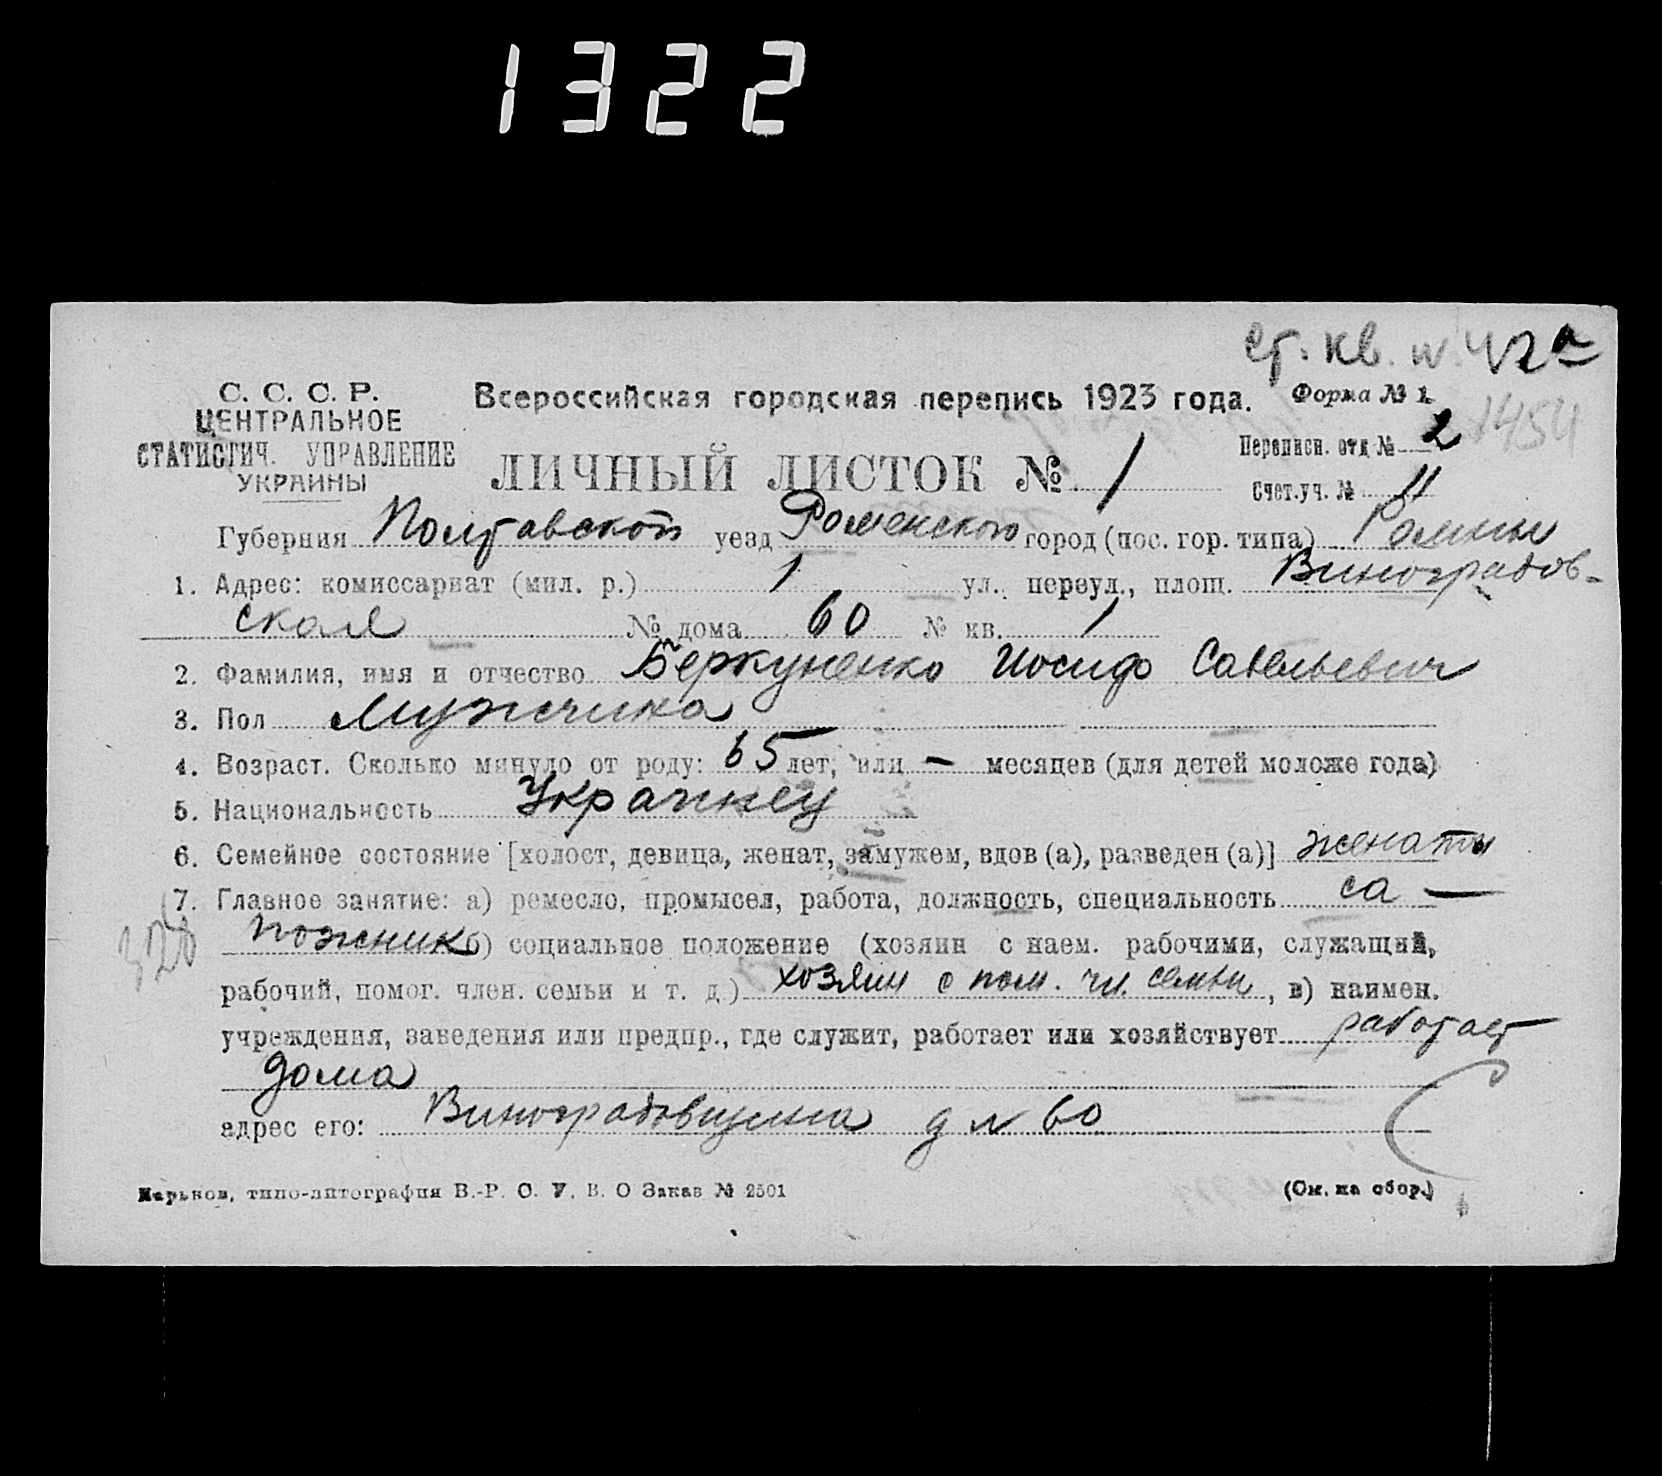 1322
ст. кв. н. 42а
С. С. С. Р.
ЦЕНТРАЛЬНОЕ
СТАТИСТИЧ. УПРАВЛЕНИЕ
УКРАИНЫ
Всероссийская городская перепись 1923 года.
Форма № 1.
1454
ЛИЧНЫЙ ЛИСТОК № 1
Переписн. отд № 2
Счет.уч. № 11
Губерния Полтавской уезд Роменского город (пос. гор. типа) Ромны
1. Адрес: комиссариат (мил. р.) 1 ул., переул., площ. Виноградов-
ская № дома 60 № кв. 1
2. Фамилия, имя и отчество Беркуненко Иосиф Савельевич
3. Пол Мужчина
4. Возраст. Сколько минуло от роду: 65 лет, или — месяцев (для детей моложе года)
5. Национальность Украинец
6. Семейное состояние [холост, девица, женат, замужем, вдов (а), разведен (а)] женаты
7. Главное занятие: а) ремесло, промысел, работа, должность, специальность са —
328
пожник б) социальное положение (хозяин с наем. рабочими, служащий,
рабочий, помог. член. семьи и т. д.) хозяин с пом. чл. семьи, в) наимен.
учреждения, заведения или предпр., где служит, работает или хозяйствует работает
дома
адрес его: Виноградовщина д № 60
Харьков, типо-литография В.-Р. О. У. В. О Заказ № 2501
(См. на обор.)